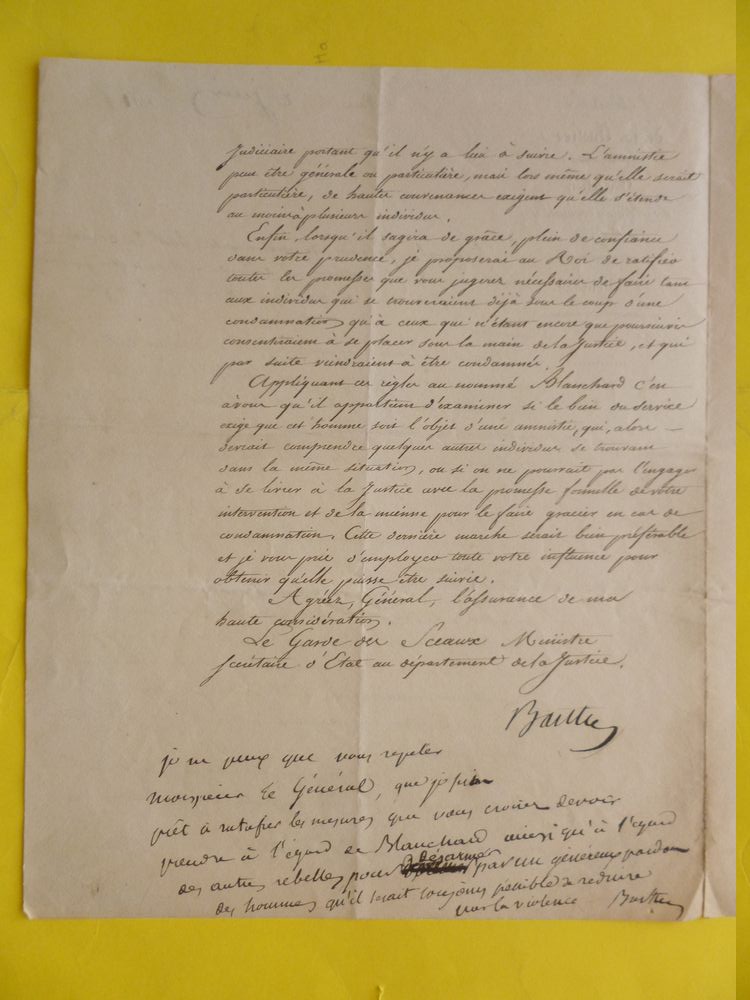 judiciaire portant qu'il n'y a lieu à suivre. L'amnistie
peut être générale ou particulière, mais lors même qu'elle serait
particulière, de hautes convenances exigent qu'elle s'étende
au moins à plusieurs individus.
Enfin, lorsqu'il s'agira de grâce, plein de confiance
dans votre prudence, je proposerai au Roi de ratifier
toutes les promesses que vous jugerez nécessaire de faire tant
aux individus qui se trouveraient déjà sous le coup d'une
condamnation qu'à ceux qui n'étant encore que poursuivis
consentiraient à se placer sous la main de la Justice, et qui
par suite viendraient à être condamnés.
Appliquant ces règles au nommé Blanchard c'en
à vous qu'il appartient d'examiner si le bien du service
exige que cet homme soit l'objet d'une amnistie, qui, alors
devrait comprendre quelques autres individus se trouvant
dans la même situation, ou si on ne pourrait pas l'engager
à se livrer à la Justice avec la promesse formelle de votre
intervention et de la mienne pour le faire gracier en cas de
condamnation. Cette dernière marche serait bien préférable
et je vous prie d'employer toute votre influence pour
obtenir qu'elle puisse être suivie.
Agréez, Général, l'assurance de ma
haute considération.
Le Garde des Sceaux Ministre
Secrétaire d'Etat au département de la Justice.
Barthe
je ne peux que vous repeter
monsieur le Général, que je suis
prêt à ratifier les mesures que vous croirez devoir
prendre à l'égard de Blanchard ainsi qu'à l'égard
des autres rebelles pour désarmer par un généreux pardon
des hommes qu'il serait toujours penible de reduire
par la violence Barthe